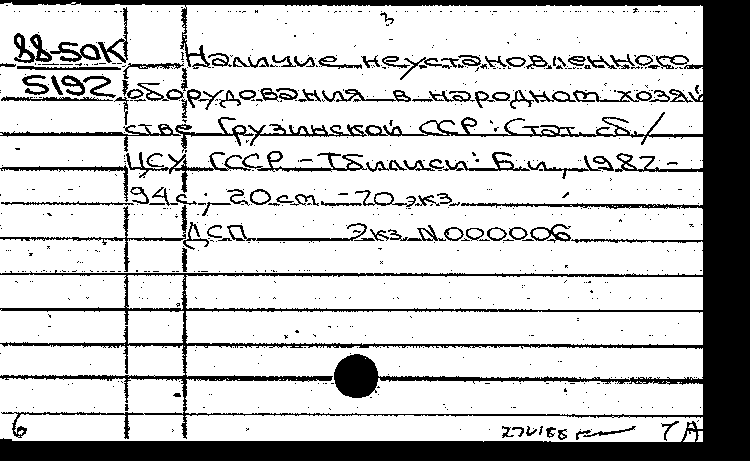 88-50К
5192
Наличие неустановленного
оборудования в народном хозяй
стве Грузинской ССР: Стат. сб./
ЦСУ ГССР – Тбилиси: Б.и., 1987.-
94с.; 20см. -70 экз
ДСП Экз N000006
6
7А